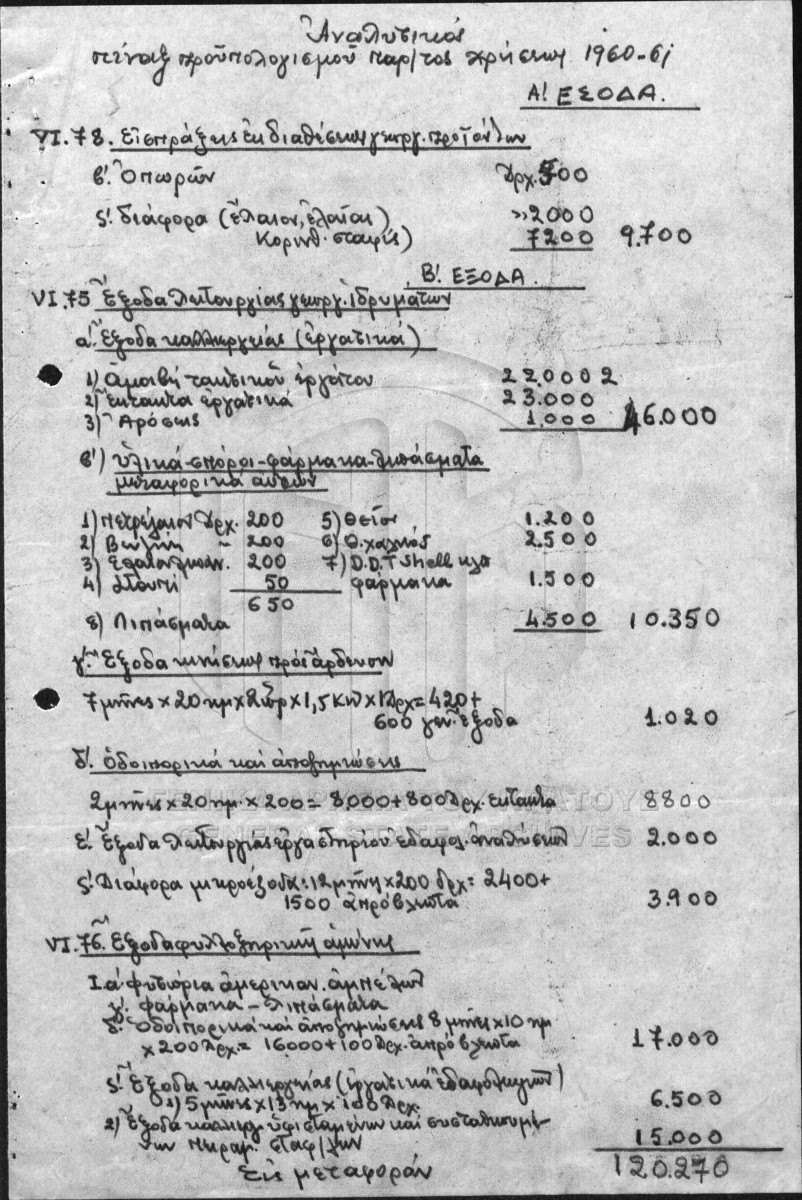 Ἀναλυτικός
πίναξ προϋπολογισμοῦ παρ/τος χρήσεως 1960-61
Α! ΕΣΟΔΑ.
VI.78. Εἰσπράξεις ἐκ διαθέσεως γεωργ. προϊόντων
β'. Ὀπωρῶν Δρχ. 500
ς'. διάφορα (ἔλαιον, ἐλαῖαι) »2000
Κορινθ. σταφίς) 7200 9.700
Β'. ΕΞΟΔΑ.
VI.75 Ἔξοδα λειτουργίας γεωργ. ἱδρυμάτων
α'. Ἔξοδα καλλιεργείας (ἐργατικά)
1) Ἀμοιβή τακτικοῦ ἐργάτου 22.000 2
2) Ἔκτακτα ἐργατικά 23.000
3) Ἀρόσεις 1.000 46.000
β') ὑλικά-σπόροι-φάρμακα-λιπάσματα
μεταφορικά αὐτῶν
1) Πετρέλαιον Δρχ. 200 5) Θεῖον 1.200
2) Βενζίνη " 200 6) Θ. χαλκός 2.500
3) 200 7) D.D.T Shell κλπ
4) Στουπί 50 φάρμακα 1.500
650
8) Λιπάσματα 4.500 10.350
γ'. Ἔξοδα κινήσεως πρός ἄρδευσιν
7 μῆνες × 20 ημ × 2 ὧρ × 1,5 KW × 1 Δρχ = 420 +
600 γεν. ἔξοδα 1.020
δ'. Ὁδοιπορικά καί ἀποζημιώσεις
2 μῆνες × 20 ημ. × 200 = 8.000 + 800 Δρχ. ἔκτακτα 8800
ΓΕΝΙΚΑ ΑΡΧΕΙΑ ΤΟΥ ΚΡΑΤΟΥΣ
GENERAL STATE ARCHIVES
ε'. Ἔξοδα λειτουργίας ἐργαστηρίου ἐδαφολ. ἀναλύσεων 2.000
ς'. Διάφορα μικροέξοδα: 12 μῆνες × 200 δρχ = 2400 +
1500 ἀπρόβλεπτα 3.900
VI.76. Ἔξοδα φυλλοξηρικῆς ἀμύνης
I.α'. φυτώρια ἀμερικαν. ἀμπέλων
γ'. φάρμακα - λιπάσματα
δ'. Ὁδοιπορικά καί ἀποζημιώσεις 8 μῆνες × 10 ημ
× 200 Δρχ. = 16000 + 100 Δρχ. ἀπρόβλεπτα 17.000
ς'. Ἔξοδα καλλιεργείας (ἐργατικά ἐδαφολογικῶν)
1) 5 μῆνες × 13 ημ × 100 Δρχ 6.500
2) Ἔξοδα καλλιεργ. ὑφισταμένων καί συσταθησομέ-
νων πειραμ. σταφ/λων 15.000
Εἰς μεταφοράν 120.270